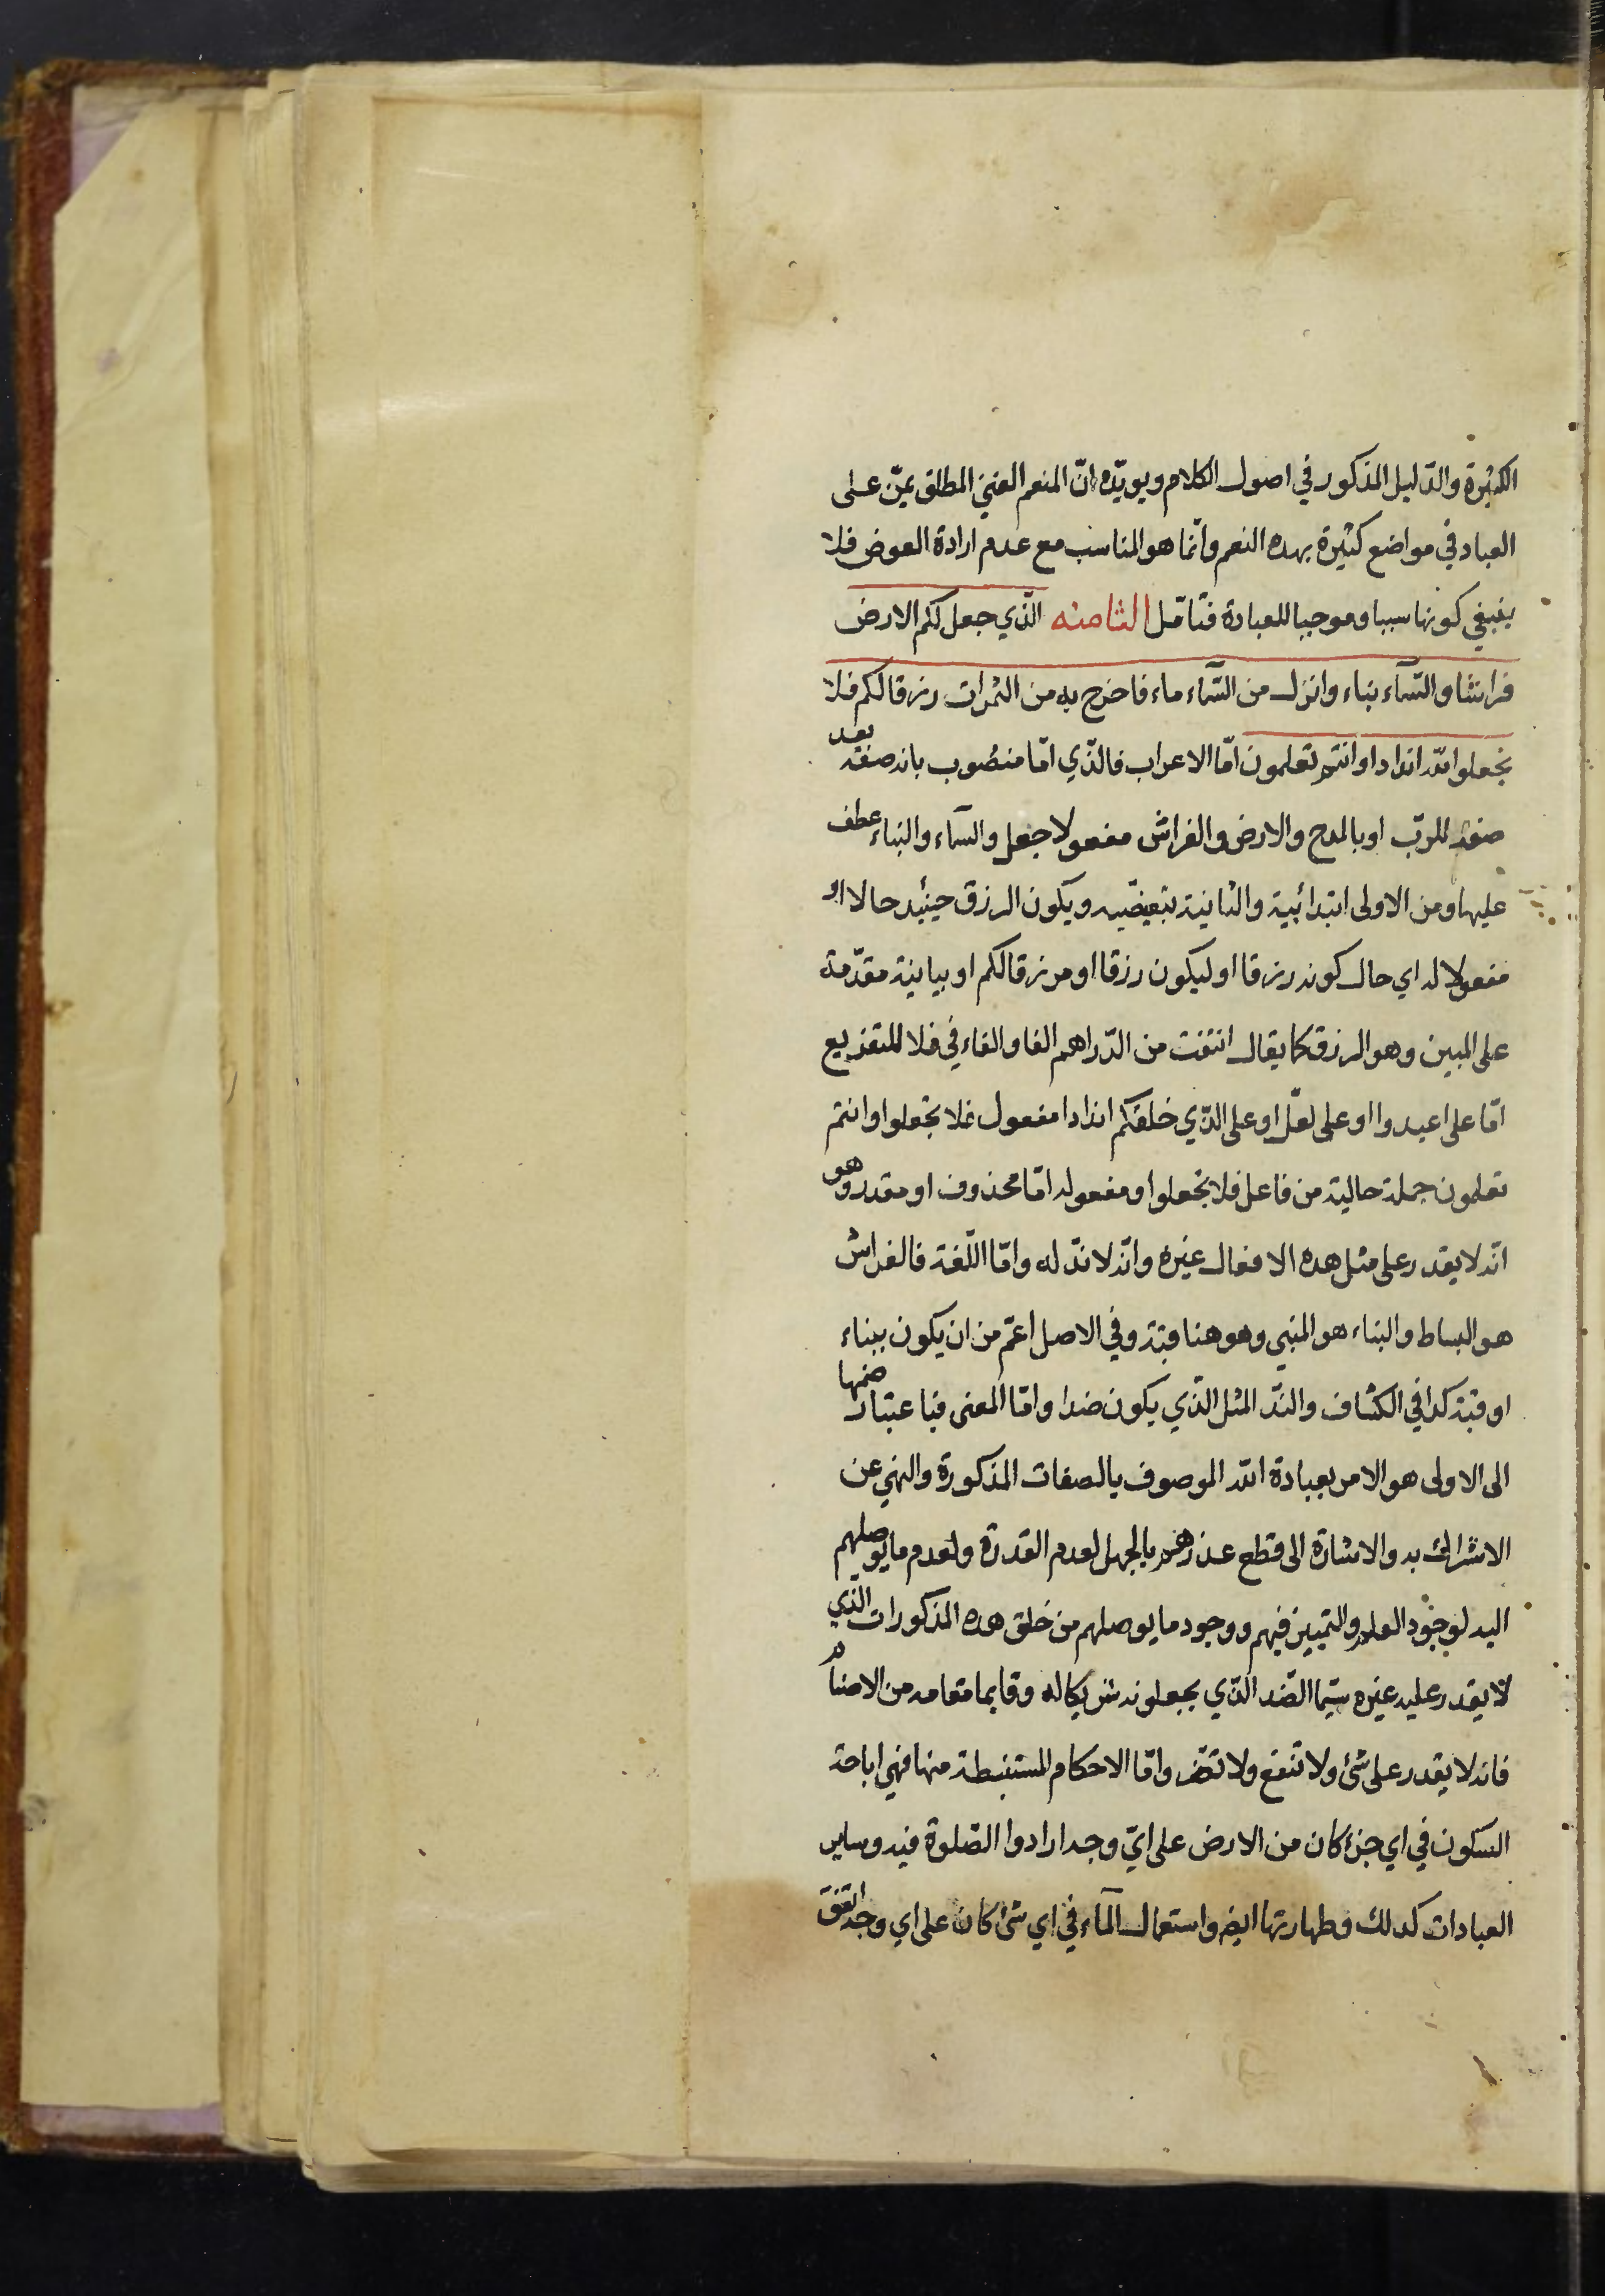 الكثيرة والدّليل المذكور في اصول الكلام ويويّده انّ المنعم الغني المطلق يمنّ على
العباد في مواضع كثيرة بهده النعم وانّما هو المناسب مع عدم ارادة العوض فلا
ينبغي كونها سببا وموجبا للعبادة فتامّل الثامنه الّذي جعل لكم الارض
فراشا والسّمآء بناء وانزل من السّمآء ماء فاخرج به من الثمرات رزقا لكم فلا
تجعلوا لله اندادا وانتم تعلمون امّا الاعراب فالّذي امّا منصُوب بانه صفة بعد
صفة للربّ او بالمدح والارض والفراش مفعولا جعل والسمآء والبناء عطف
عليها ومن الاولى ابتدائيية والثانية تبعيضّيه ويكون الرزق حينئيد حالا او
مفعولا له اي حال كونه رزقا او ليكون رزقا او مرزقا لكم او بيانية مقدّمة
على المبين وهو الرزق كما يقال انتفت من الدّراهم الفا والفاء في فلا للتفريع
امّا على اعبدوا او على لعلّ او على الذّي خلقكم اندادا مفعول فلا تجعلوا وانتم
تعلمون جملة حالية من فاعل فلا تجعلوا ومفعوله امّا محذوف او مقدر وهو
انّه لا يقدر على مثل هده الافعال غيره وانّه لا ندّ له وامّا اللّغة فالفراش
هو البساط والبناء هو المبني وهو هنا قبّة وفي الاصل اعمّ من ان يكون ببناء
او قبّة كدا في الكشاف والندّ المثل الذّي يكون ضدا وامّا المعنى فباعتبار ضمها
الى الاولى هو الامر بعبادة الله الموصوف بالصفات المذكورة والنهي عن
الاشراك به والاشارة الى قطع عذرهم بالجهل لعدم القدرة ولعدم ما يوصلهم
اليه لوجود العلم والتمييز فيهم ووجود ما يوصلهم من خلق هده المذكورات الّذي
لا يقدر عليه غيره سيّما الضّد الذّي يجعلونه شريكا له وقايما مقامه من الاصنام
فانه لا يقدر على شئ ولا تنفع ولا تضّر وامّا الاحكام المستنبطة منها فهي اباحة
السكون في اي جزء كان من الارض على ايّ وجه ارادوا الصّلوة فيه وساير
العبادات كدلك وطهارتها ايض واستعمال المآء في اي شئ كان على اي وجه اتّفق